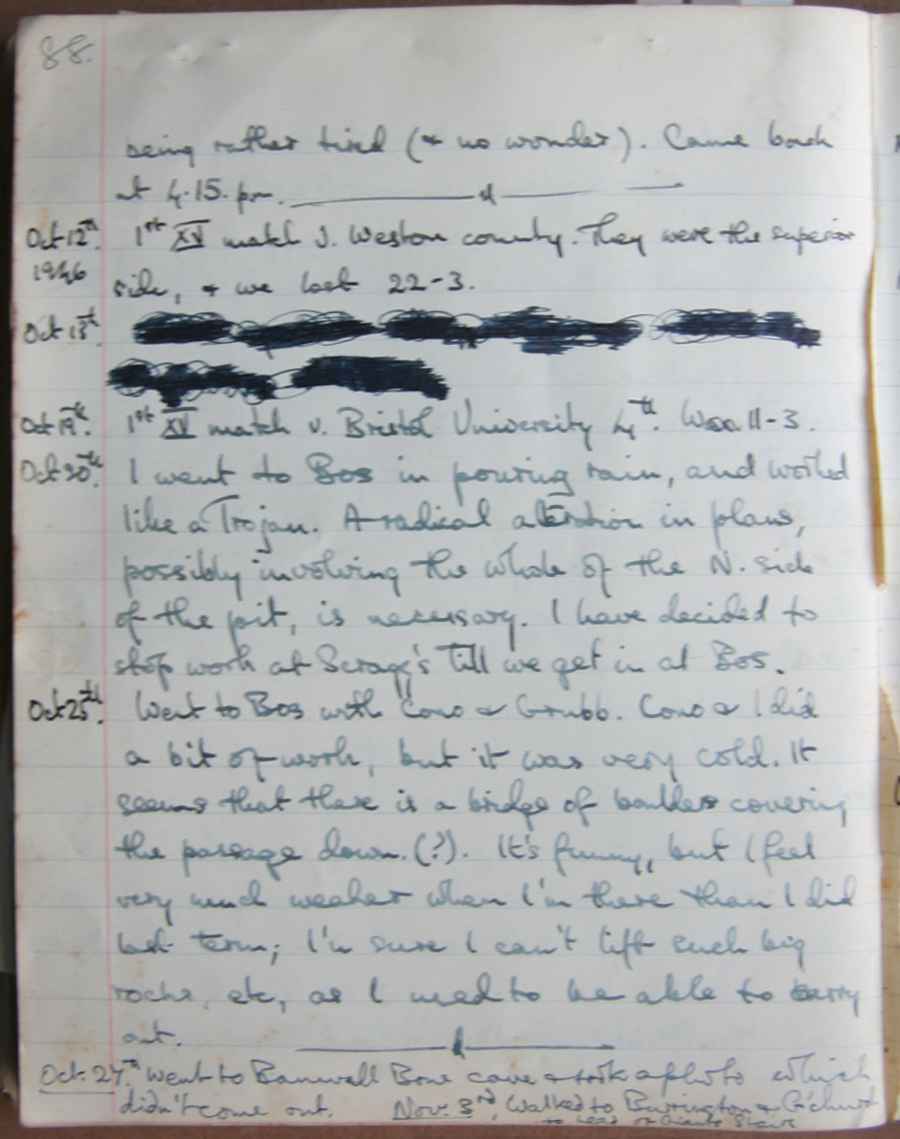 88.
being rather tired (& no wonder). Came back
at 4.15. pm.
Oct 12th. 1st XV match v. Weston county. They were the superior
1946 side, & we lost 22-3.
Oct 13th.
Oct 19th. 1st XV match v. Bristol University 4th. Won 11-3.
Oct 20th. I went to Bos in pouring rain, and worked
like a Trojan. A radical alteration in plans,
possibly involving the whole of the N. side
of the pit, is necessary. I have decided to
stop work at Scragg's till we get in at Bos.
Oct 25th. Went to Bos with Cono & Grubb. Cono & I did
a bit of work, but it was very cold. It
seems that there is a bridge of boulders covering
the passage down. (?). It's funny, but I feel
very much weaker when I'm there than I did
last term; I'm sure I can't lift such big
rocks, etc, as I used to be able to carry
out.
Oct. 27th. Went to Banwell Bone cave & took a photo which
didn't come out. Nov. 3rd, Walked to Burrington &
to lead